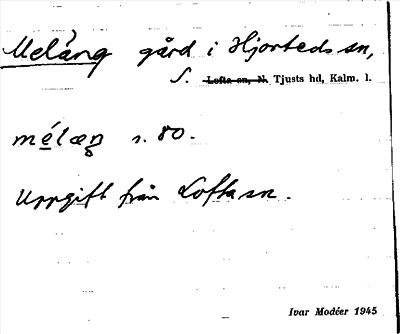 Melång gård i Hjorteds sn,
S. Lofta sn, N. Tjusts hd, Kalm. l.
mélæŋ s. 80.
Uppgift från Lofta sn.
Ivar Modéer 1945